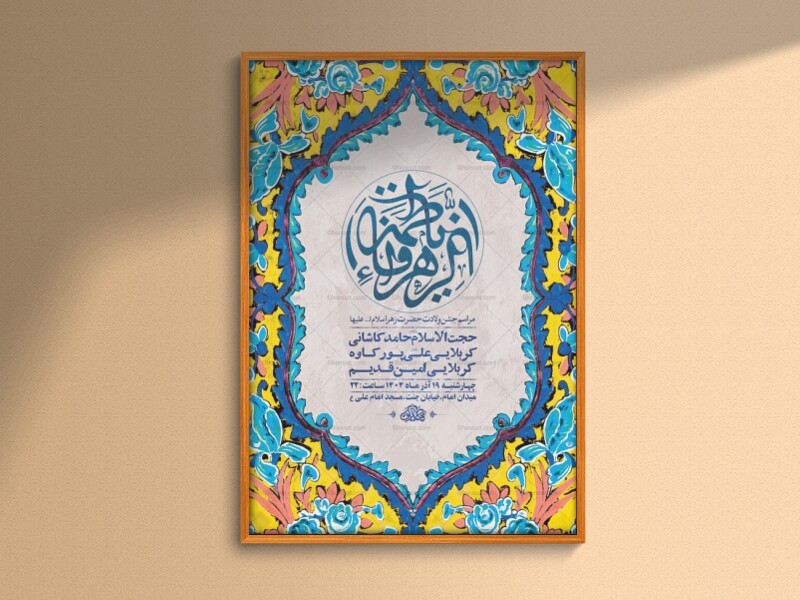 یا فاطمة الزهراء
مراسم جشن ولادت حضرت زهرا سلام ا... علیها
حجت الاسلام حامد کاشانی
کربلایی علی پور کاوه
کربلایی امین قدیم
چهارشنبه ۱۹ آذر ماه ۱۴۰۴ ساعت: ۲۲
میدان امام، خیابان جنت، مسجد امام علی ع